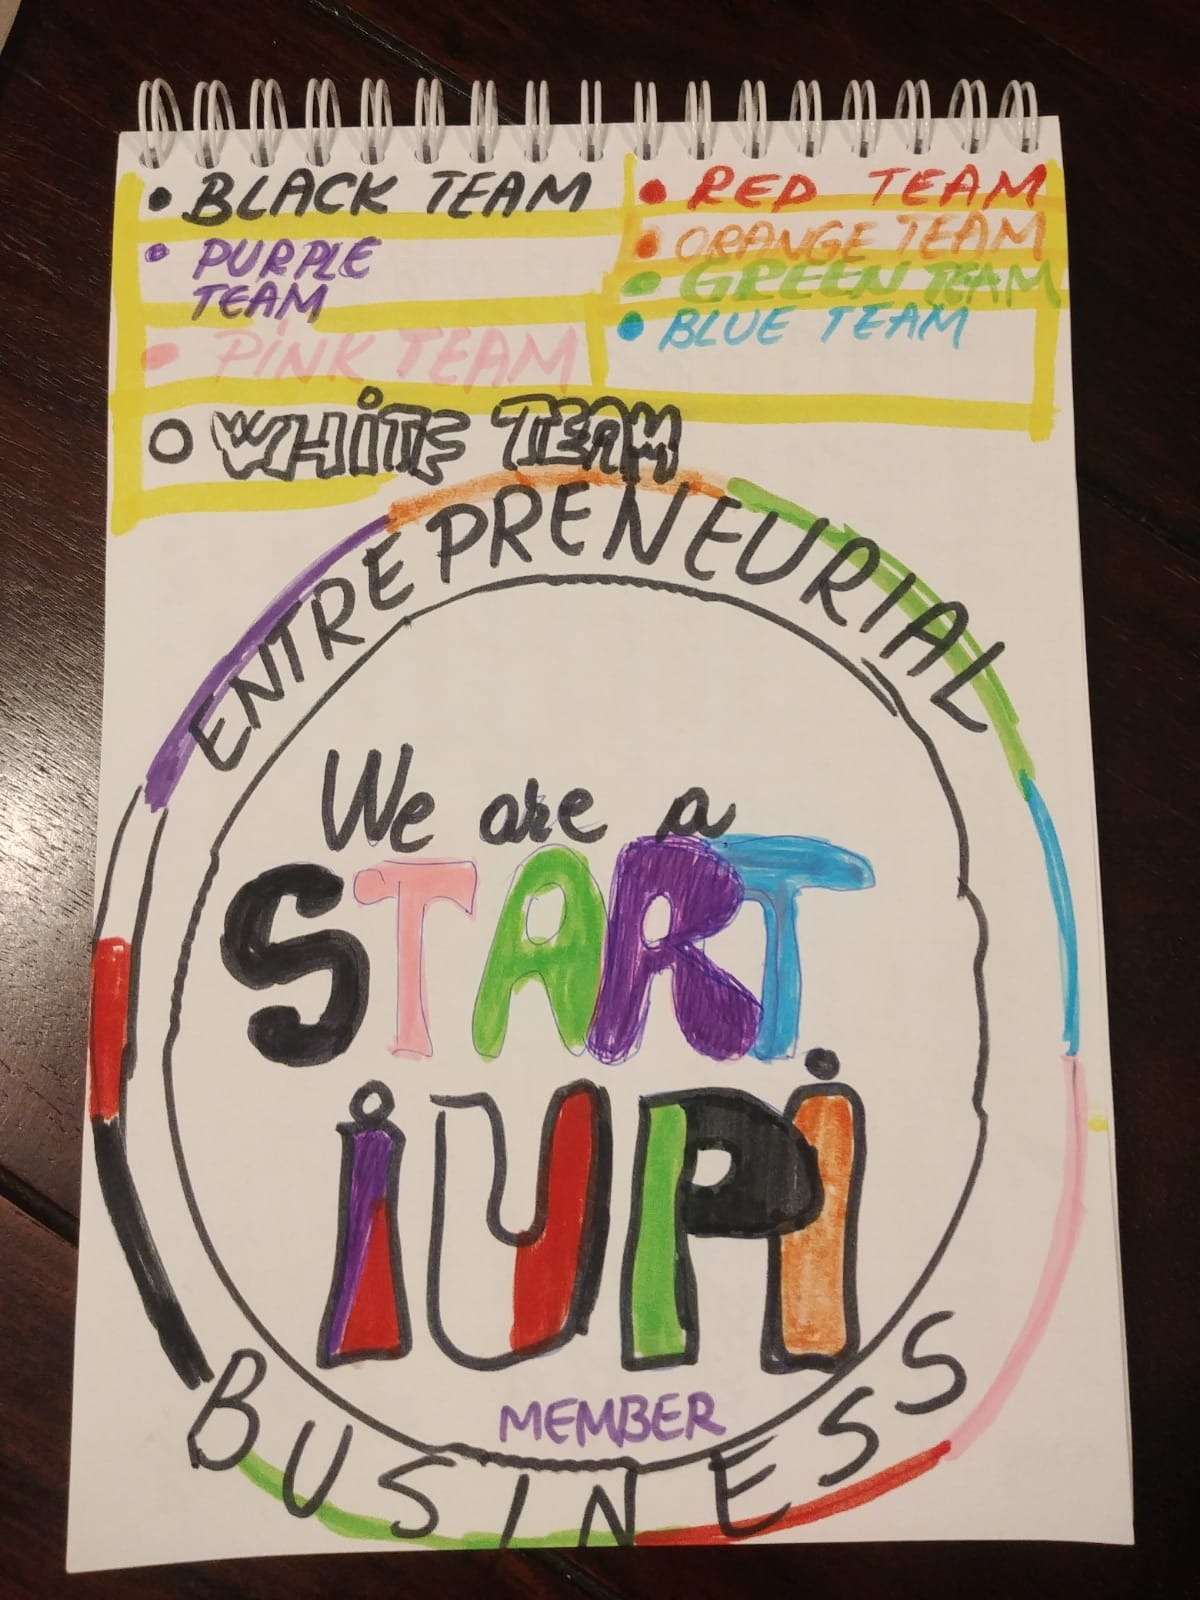 • BLACK TEAM
• PURPLE
TEAM
• PINK TEAM
• RED TEAM
• ORANGE TEAM
• GREEN TEAM
• BLUE TEAM
○ WHiTE TEAM
ENTREPRENEURIAL
We are a
START
iUPi
MEMBER
BUSINESS